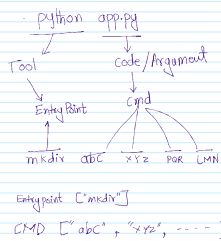 python app.py
Tool Code/Argument
EntryPoint Cmd
mkdir abc XYZ PQR LMN
Entrypoint ["mkdir"]
CMD ["abc", "XYZ", -----